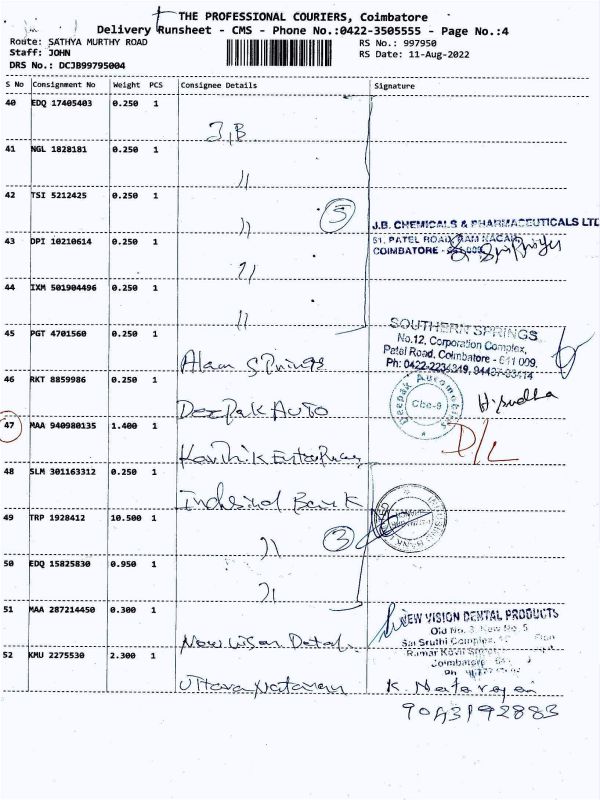 THE PROFESSIONAL COURIERS, Coimbatore
Delivery Runsheet - CMS - Phone No.:0422-3505555 - Page No.:4
Route: SATHYA MURTHY ROAD RS No.: 997950
Staff: JOHN RS Date: 11-Aug-2022
DRS No.: DCJB99795004
S No Consignment No Weight PCS Consignee Details Signature
40 EDQ 17405403 0.250 1
J.B.
41 NGL 1828181 0.250 1
"
42 TSI 5212425 0.250 1
" 5
J.B. CHEMICALS & PHARMACEUTICALS LTD
43 DPI 10210614 0.250 1 51, PATEL ROAD, RAM NAGAR
COIMBATORE -
"
44 IXM 501904496 0.250 1
"
SOUTHERN SPRINGS
45 PGT 4701560 0.250 1 No.12, Corporation Complex,
Patel Road, Coimbatore - 641 009.
Alam Springs Ph: 0422-2234319,
46 RKT 8859986 0.250 1 Deepak Automobiles
Cbe-9
Deepak Auto
47 MAA 940980135 1.400 1 D/L
Karthik Enterprises
48 SLM 301163312 0.250 1
Indusind Bank
49 TRP 1928412 10.500 1
" 3
50 EDQ 15825830 0.950 1
"
51 MAA 287214450 0.300 1 NEW VISION DENTAL PRODUCTS
Old No. 3, New No. 5
Sai Sruthi Complex,
New Vision Dental
52 KMU 2275530 2.300 1 Coimbatore
Uttara Natarajan K. Natarajan
9043192883